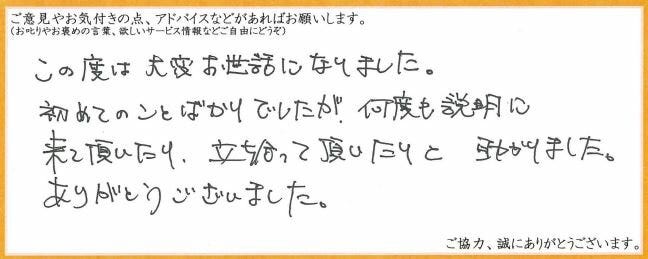 ご意見やお気付きの点、アドバイスなどがあればお願いします。
(お叱りやお褒めの言葉、欲しいサービス情報などご自由にどうぞ)
この度は大変お世話になりました。
初めてのことばかりでしたが、何度も説明に
来て頂いたり、立ち合って頂いたりと 助かりました。
ありがとうございました。
ご協力、誠にありがとうございます。